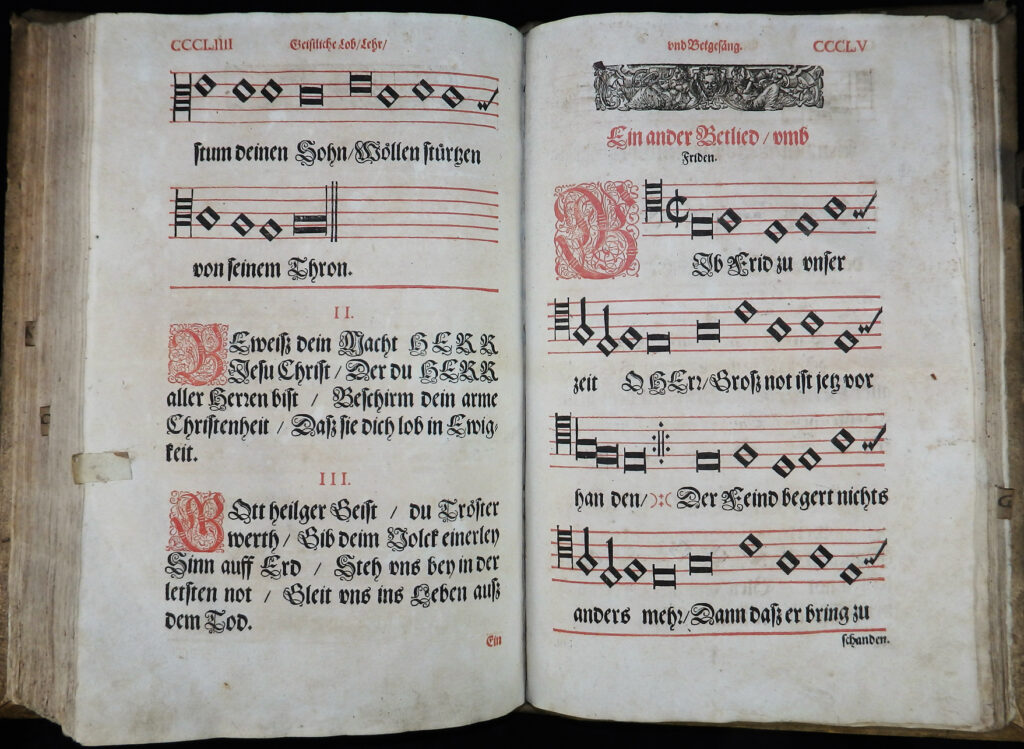 CCCLIIII
Geistliche Lob/Lehr/
stum deinen Sohn/Wöllen stürtzen
von seinem Thron.
II.
BEweiß dein Macht HERR
Jesu Christ / Der du HERR
aller Herren bist / Beschirm dein arme
Christenheit / Daß sie dich lob in Ewig-
keit.
III.
GOtt heilger Geist / du Tröster
werth / Gib deim Volck einerley
Sinn auff Erd / Steh vns bey in der
letsten not / Gleit vns ins Leben auß
dem Tod.
Ein
vnd Betgesäng.
CCCLV
Ein ander Betlied / vmb
Friden.
GIb Frid zu vnser
zeit O HErr/Groß not ist jetz vor
handen/ Der Feind begert nichts
anders mehr/Dann daß er bring zu
schanden.